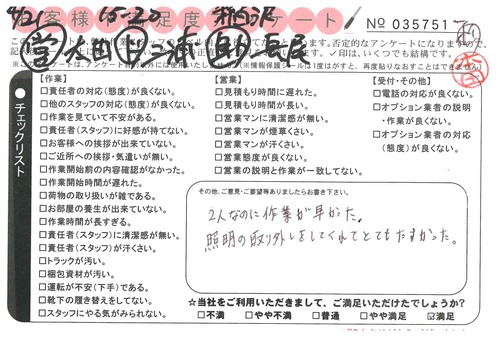 お客様満足度アンケート
No 035751
4/21
15-20
新所沢
【作業】
□責任者の対応(態度)が良くない。
□他のスタッフの対応(態度)が良くない。
□作業を見ていて不安がある。
□責任者(スタッフ)に好感が持てない。
□お客様への挨拶が出来ていない。
□ご近所への挨拶・気遣いが無い。
□作業開始前の内容確認がなかった。
□作業開始時間が遅れた。
□荷物の取り扱いが雑である。
□お部屋の養生が出来ていない。
□作業時間が長すぎる。
□責任者(スタッフ)に清潔感が無い。
□責任者(スタッフ)が汗くさい。
□トラックが汚い。
□梱包資材が汚い。
□運転が不安(下手)である。
□靴下の履き替えをしてない。
□スタッフにやる気がみられない。
チェックリスト
【営業】
□見積もり時間に遅れた。
□見積もり時間が長い。
□営業マンに清潔感が無い。
□営業マンが煙草くさい。
□営業マンが汗くさい。
□営業態度が良くない。
□営業の説明と作業が一致してない。
【受付・その他】
□電話の対応が良くない。
□オプション業者の説明
・作業が良くない。
□オプション業者の対応
(態度)が良くない。
その他、ご意見・ご要望等ありましたらお書き下さい。
2人なのに作業が早かった。
照明の取り外しをしてくれてとてもたすかった。
☆当社をご利用いただきまして、ご満足いただけたでしょうか?
□不満 □やや不満 □普通 □やや満足 ☑満足